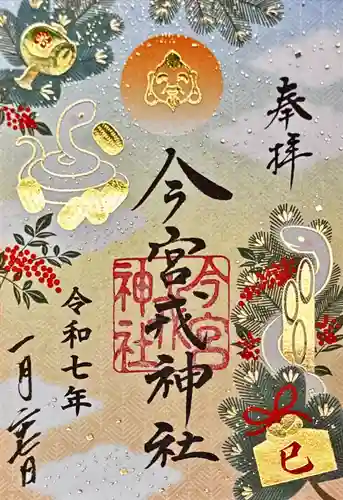 奉拝
今宮戎神社
今宮戎神社
令和七年
一月
日
巳